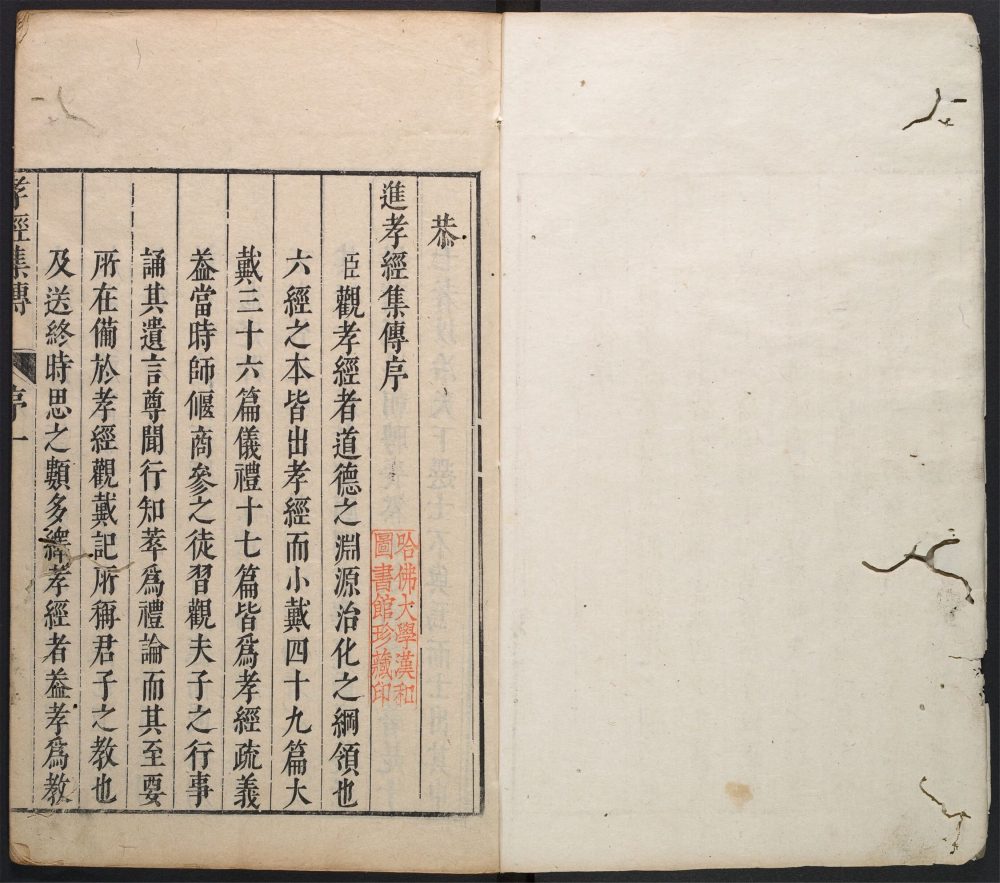 恭
進孝經集傳序
臣觀孝經者道德之淵源治化之綱領也
六經之本皆出孝經而小戴四十九篇大
戴三十六篇儀禮十七篇皆爲孝經疏義
葢當時師偃商參之徒習觀夫子之行事
誦其遺言尊聞行知萃爲禮論而其至要
所在備於孝經觀戴記所稱君子之教也
及送終時思之類多繹孝經者葢孝爲教
孝經集傳
序
一
哈佛大學漢和
圖書館珍藏印